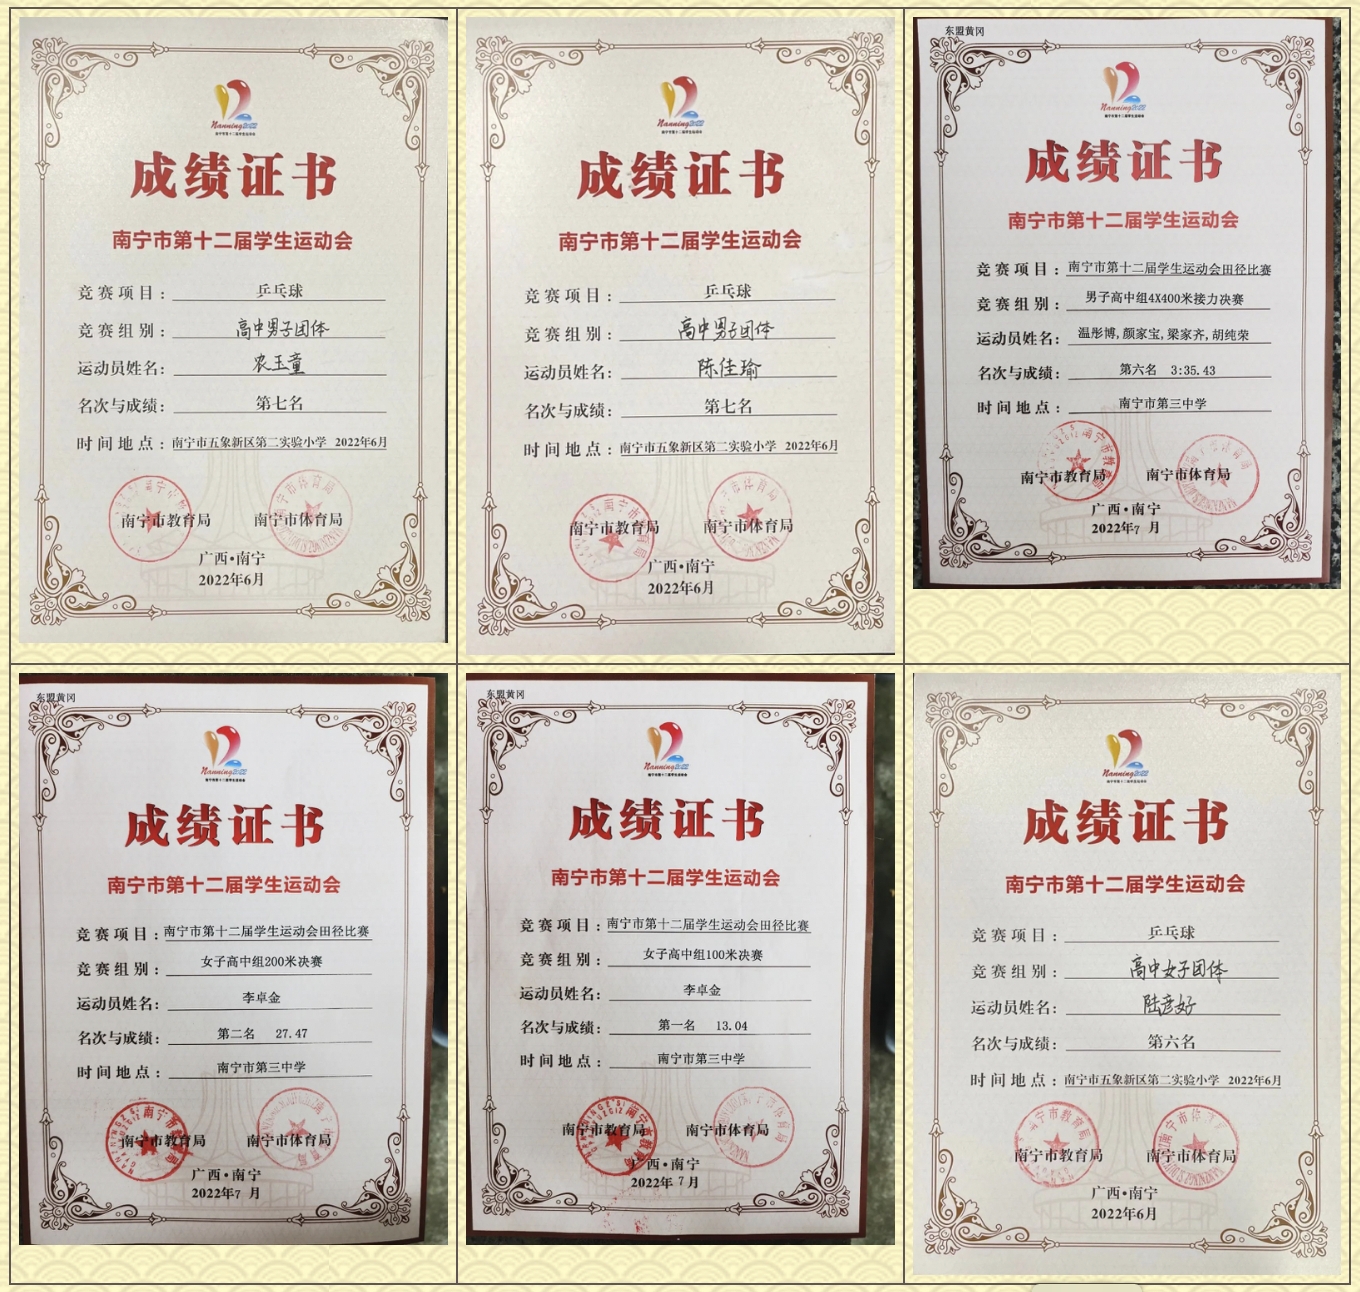 Nanning2022
南宁市第十二届学生运动会
成绩证书
南宁市第十二届学生运动会
竞赛项目：乒乓球
竞赛组别：高中男子团体
运动员姓名：农玉童
名次与成绩：第七名
时间地点：南宁市五象新区第二实验小学 2022年6月
南宁市教育局 南宁市体育局
广西·南宁
2022年6月
Nanning2022
南宁市第十二届学生运动会
成绩证书
南宁市第十二届学生运动会
竞赛项目：乒乓球
竞赛组别：高中男子团体
运动员姓名：陈佳瑜
名次与成绩：第七名
时间地点：南宁市五象新区第二实验小学 2022年6月
南宁市教育局 南宁市体育局
广西·南宁
2022年6月
东盟黄冈
Nanning2022
南宁市第十二届学生运动会
成绩证书
南宁市第十二届学生运动会
竞赛项目：南宁市第十二届学生运动会田径比赛
竞赛组别：男子高中组4X400米接力决赛
运动员姓名：温彤博,颜家宝,梁家齐,胡纯荣
名次与成绩：第六名 3:35.43
时间地点：南宁市第三中学
南宁市教育局 南宁市体育局
广西·南宁
2022年7月
东盟黄冈
Nanning2022
南宁市第十二届学生运动会
成绩证书
南宁市第十二届学生运动会
竞赛项目：南宁市第十二届学生运动会田径比赛
竞赛组别：女子高中组200米决赛
运动员姓名：李卓金
名次与成绩：第二名 27.47
时间地点：南宁市第三中学
南宁市教育局 南宁市体育局
广西·南宁
2022年7月
东盟黄冈
Nanning2022
南宁市第十二届学生运动会
成绩证书
南宁市第十二届学生运动会
竞赛项目：南宁市第十二届学生运动会田径比赛
竞赛组别：女子高中组100米决赛
运动员姓名：李卓金
名次与成绩：第一名 13.04
时间地点：南宁市第三中学
南宁市教育局 南宁市体育局
广西·南宁
2022年7月
Nanning2022
南宁市第十二届学生运动会
成绩证书
南宁市第十二届学生运动会
竞赛项目：乒乓球
竞赛组别：高中女子团体
运动员姓名：陆彦好
名次与成绩：第六名
时间地点：南宁市五象新区第二实验小学 2022年6月
南宁市教育局 南宁市体育局
广西·南宁
2022年6月